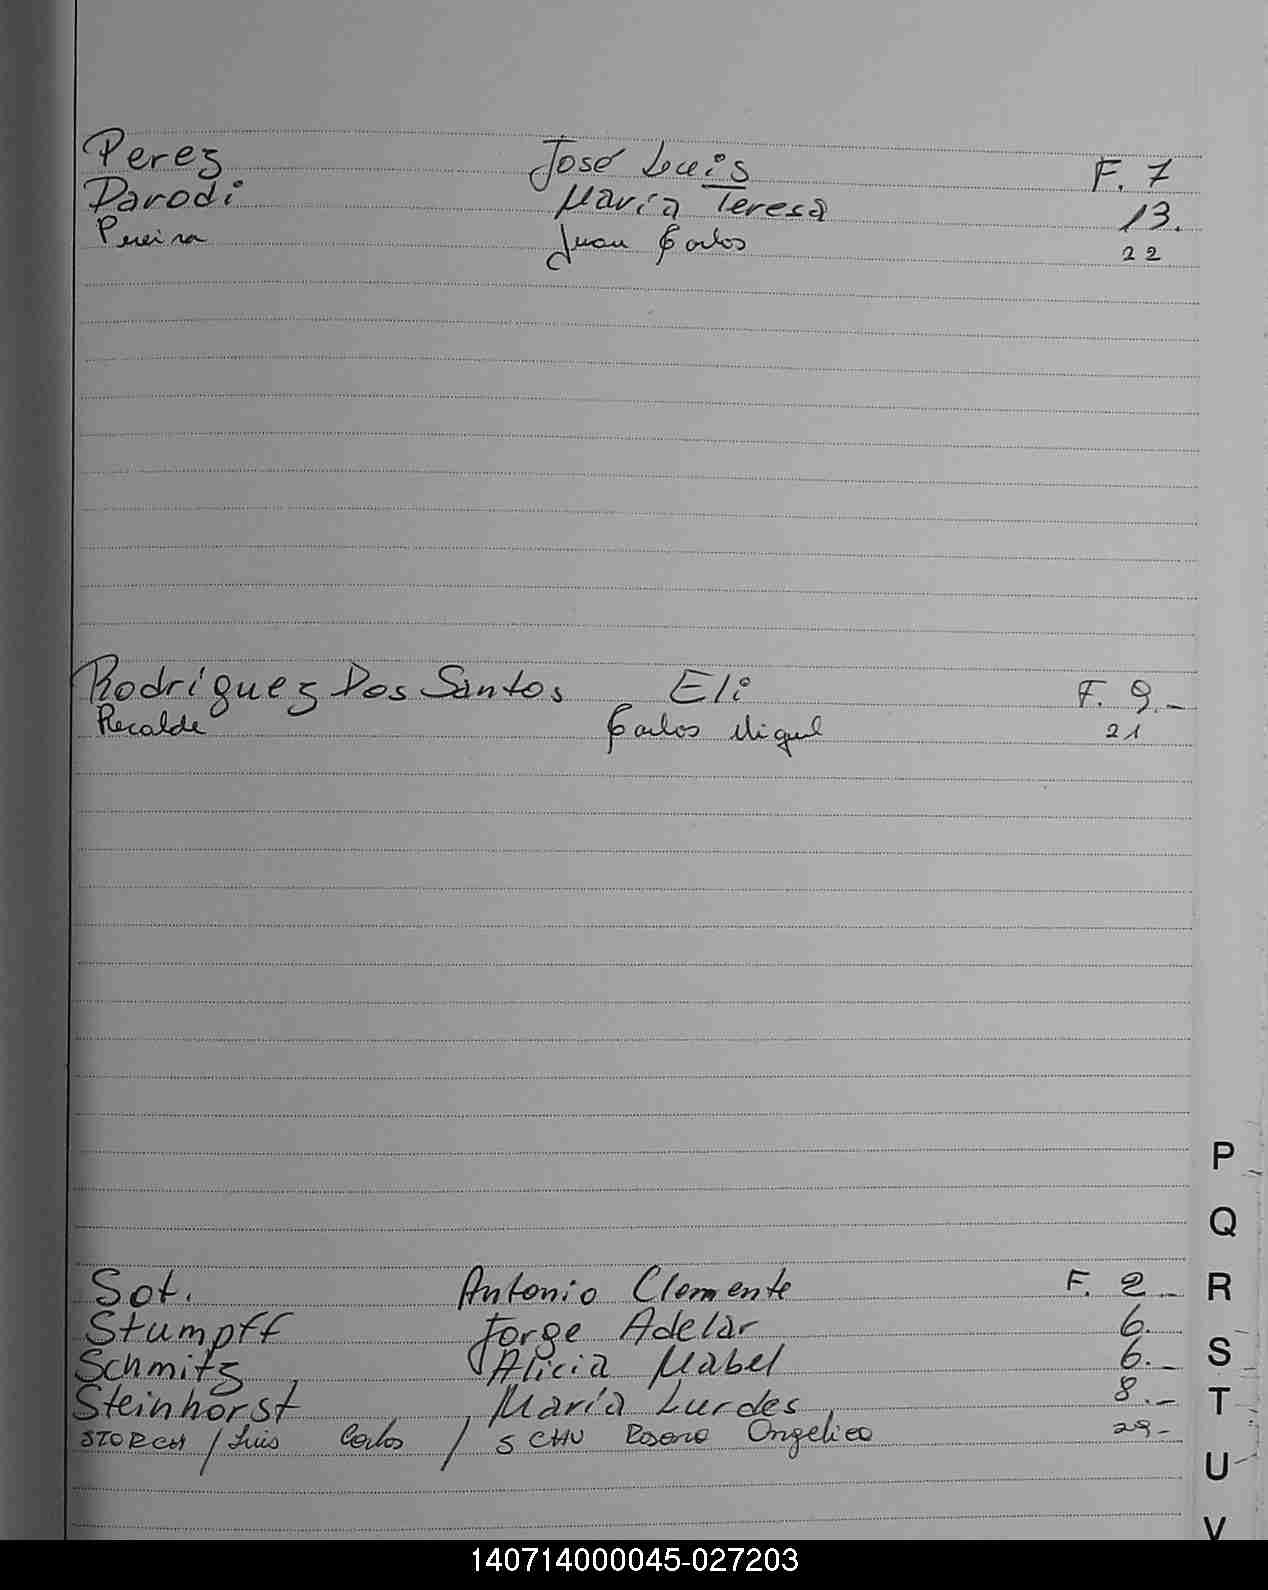 Perez José Luis F. 7
Parodi María Teresa 13.
Pereira Juan Carlos 22
Rodríguez Dos Santos Eli F. 9.-
Recalde Carlos Miguel 21
Sot. Antonio Clemente F. 2
Stumpff Jorge Adelar 6.
Schmitz, Alicia Mabel 6.-
Steinhorst, María Lurdes, 8.-
STORCH / Luis Carlos / SCHU Angelica 29-
P
Q
R
S
T
U
V
140714000045-027203